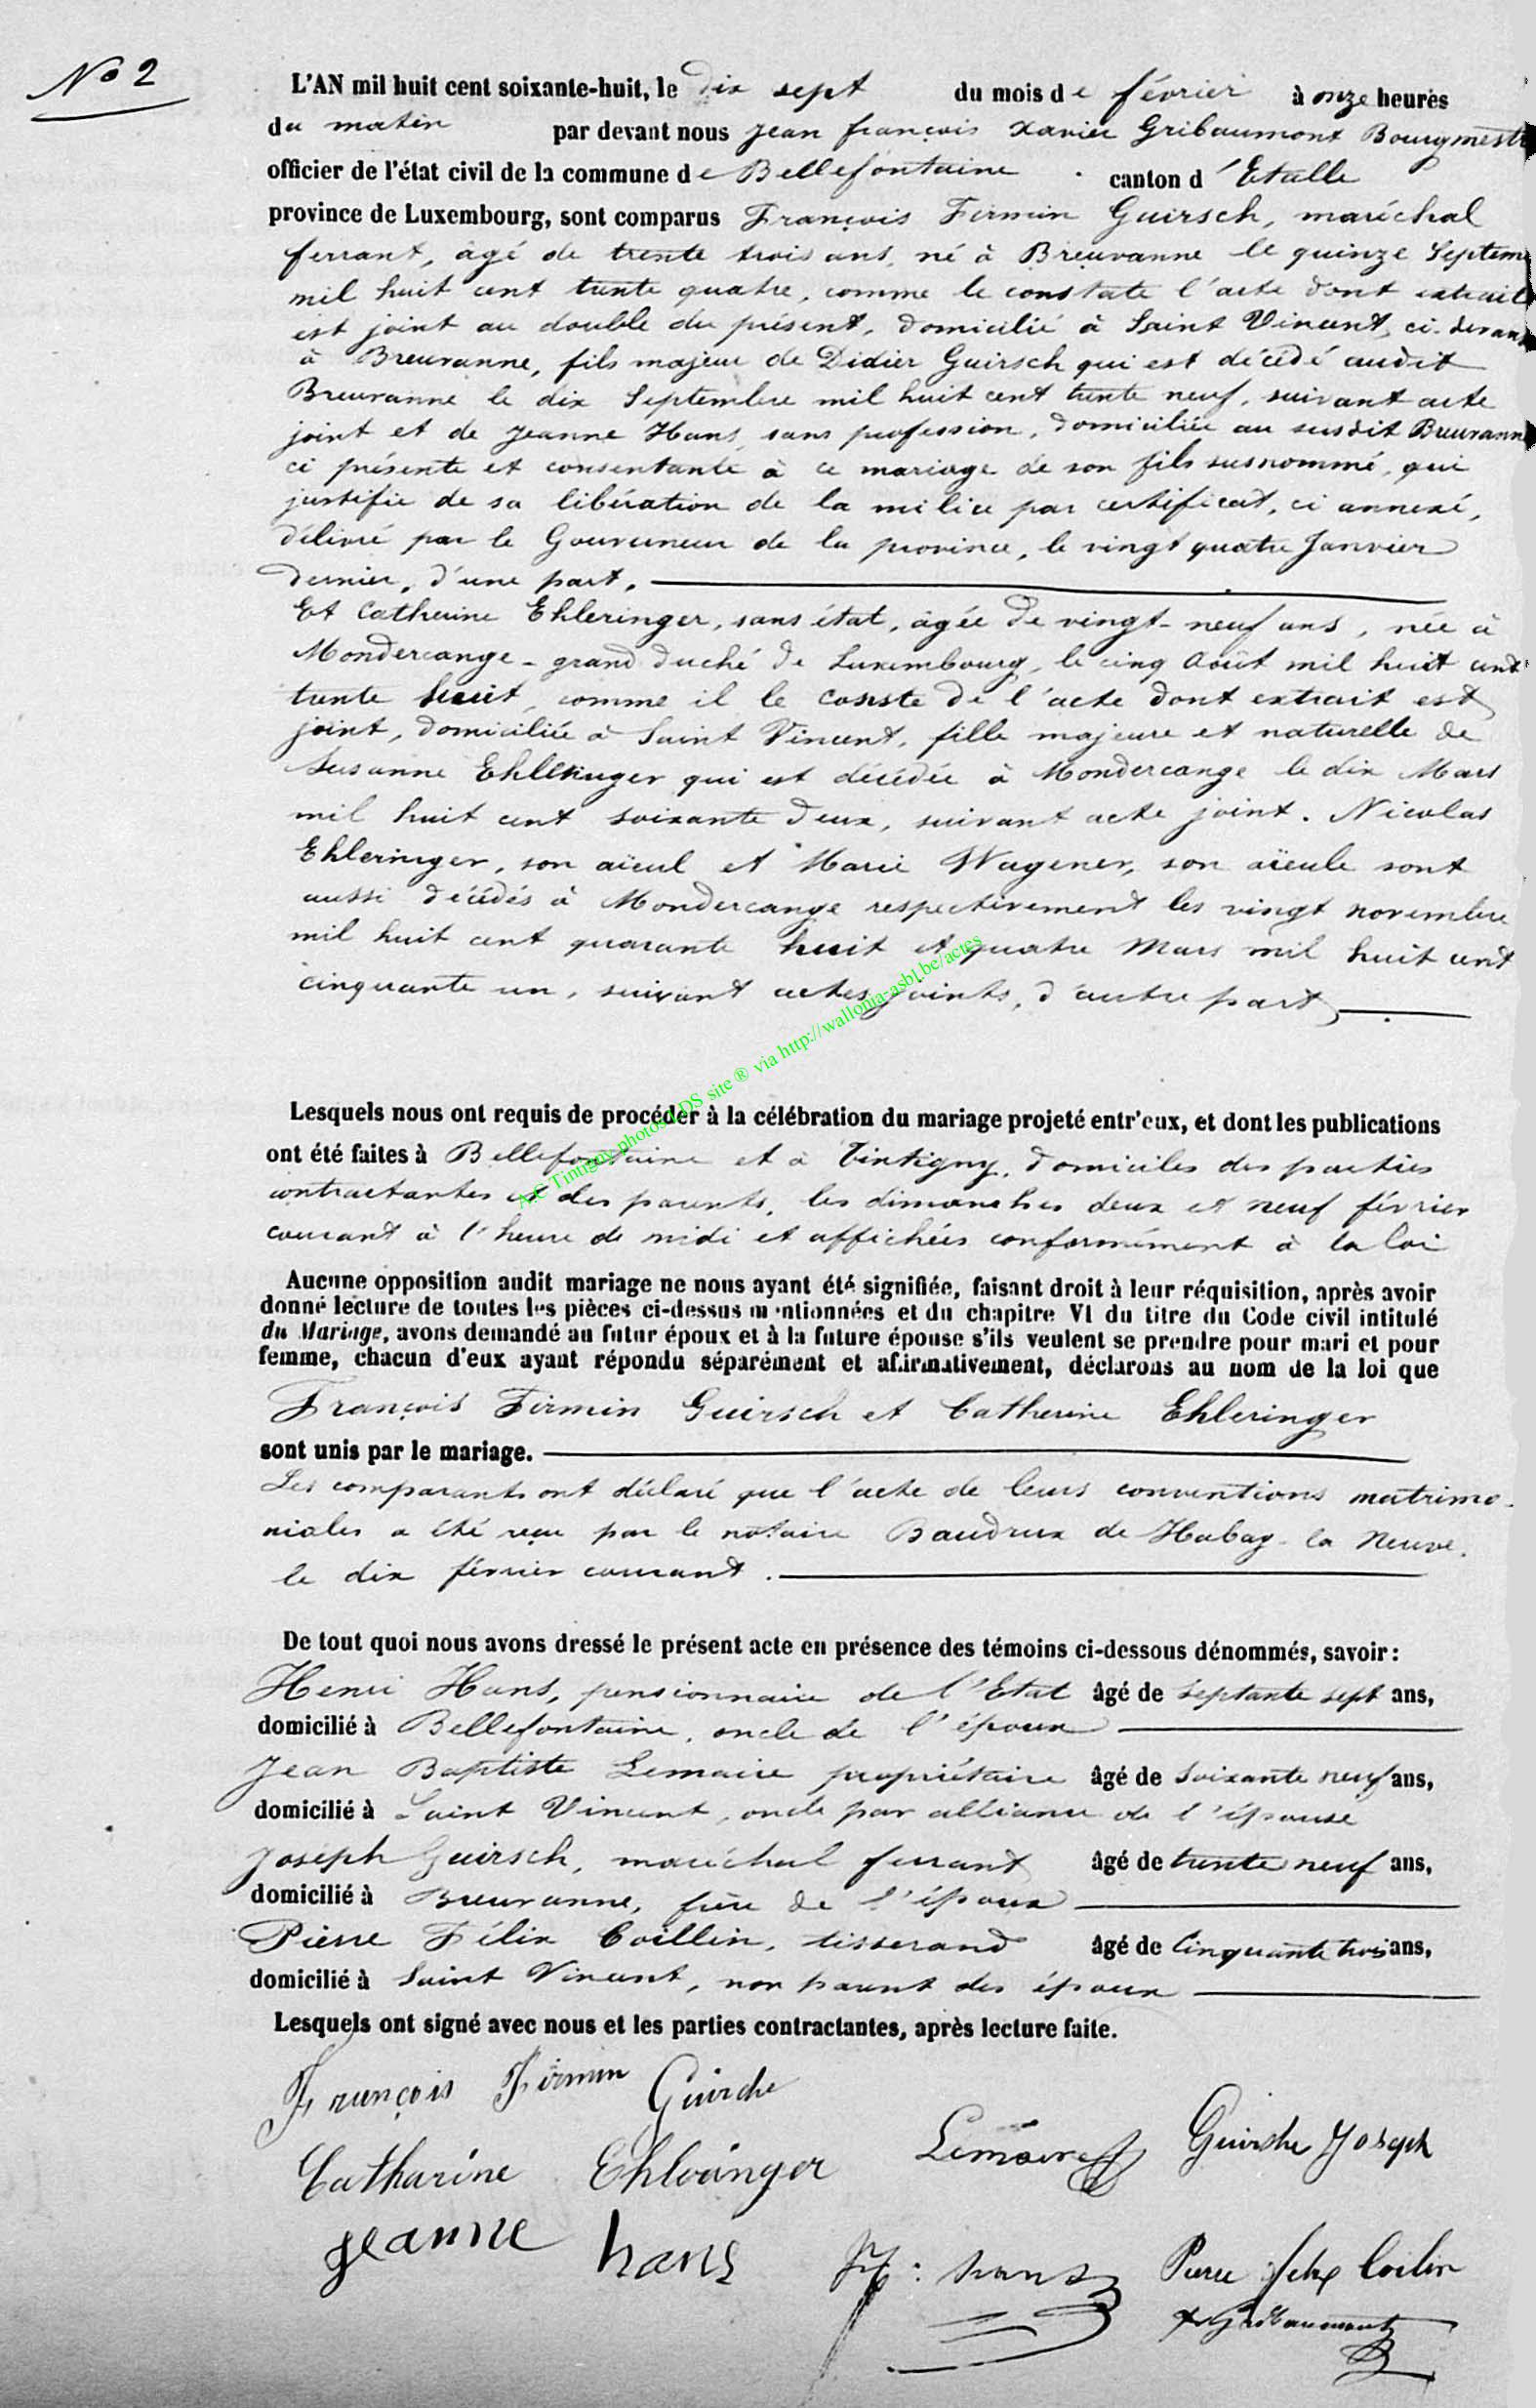 No 2
L'AN mil huit cent soixante-huit, le dix sept du mois de février à onze heures
du matin par devant nous Jean françois Xavier Gribaumont Bourgmestre
officier de l'état civil de la commune de Bellefontaine canton d'Etalle
province de Luxembourg, sont comparus François Firmin Guirsch, maréchal
ferrant, âgé de trente trois ans, né à Breuvanne le quinze Septem
mil huit cent trente quatre, comme le constate l'acte dont extrait
est joint au double du présent, domicilié à Saint Vincent, ci-devant
à Breuvanne, fils majeur de Didier Guirsch qui est décédé audit
Breuvanne le dix Septembre mil huit cent trente neuf, suivant acte
joint et de Jeanne Hans, sans profession, domiciliée au susdit Breuvanne
ci présente et consentante à ce mariage de son fils susnommé, qui
justifie de sa libération de la milice par certificat, ci annexé,
délivré par le Gouverneur de la province, le vingt quatre Janvier
dernier, d'une part,
Et Catherine Ehleringer, sans état, âgée de vingt-neuf ans, née à
Mondercange - grand duché de Luxembourg, le cinq Août mil huit cent
trente huit, comme il le conste de l'acte dont extrait est
joint, domiciliée à Saint Vincent, fille majeure et naturelle de
Susanne Ehleringer qui est décédée à Mondercange le dix Mars
mil huit cent soixante deux, suivant acte joint. Nicolas
Ehleringer, son aïeul et Marie Wagener, son aïeule sont
aussi décédés à Mondercange respectivement les vingt novembre
mil huit cent quarante huit et quatre Mars mil huit cent
cinquante un, suivant actes joints, d'autre part
A.C Tintigny photos LDS site ® via http://wallonia-asbl.be/actes
Lesquels nous ont requis de procéder à la célébration du mariage projeté entr'eux, et dont les publications
ont été faites à Bellefontaine et à Tintigny, domiciles des parties
contractantes et des parents, les dimanches deux et neuf février
courant à l'heure de midi et affichées conformément à la loi
Aucune opposition audit mariage ne nous ayant été signifiée, faisant droit à leur réquisition, après avoir
donné lecture de toutes les pièces ci-dessus mentionnées et du chapitre VI du titre du Code civil intitulé
du Mariage, avons demandé au futur époux et à la future épouse s'ils veulent se prendre pour mari et pour
femme, chacun d'eux ayant répondu séparément et affirmativement, déclarons au nom de la loi que
François Firmin Guirsch et Catherine Ehleringer
sont unis par le mariage.
Les comparants ont déclaré que l'acte de leurs conventions matrimo-
niales a été reçu par le notaire Baudrux de Habay-la Neuve.
le dix février courant.
De tout quoi nous avons dressé le présent acte en présence des témoins ci-dessous dénommés, savoir:
Henri Hans, pensionnaire de l'Etat âgé de septante sept ans,
domicilié à Bellefontaine, oncle de l'époux
Jean Baptiste Lemaire propriétaire âgé de soixante neuf ans,
domicilié à Saint Vincent, oncle par alliance de l'épouse
Joseph Guirsch, maréchal ferrant âgé de trente neuf ans,
domicilié à Breuvanne, frère de l'époux
Pierre Félix Coillin, tisserand âgé de Cinquante trois ans,
domicilié à Saint Vincent, non parent des époux
Lesquels ont signé avec nous et les parties contractantes, après lecture faite.
François Firmin Guirche
Catharine Ehleringer Lemaire Guirche Joseph
jeanne hans H: hans Pierre felix Coilin
X Gribaumont